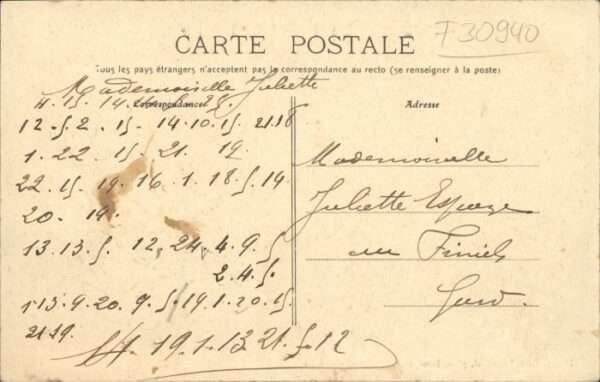 F30940
CARTE POSTALE
Tous les pays étrangers n'acceptent pas la correspondance au recto (se renseigner à la poste)
Mademoiselle Juliette
Correspondance
Adresse
12-5.2. 15- 14.10.15. 21.18
1. 22. 15. 21. 19.
22. 15. 19. 16. 1. 18. 5. 14
20. 19.
13.13.5. 12. 24. 4. 9. 5
2.4.5.
1.13.9.20.9.5.19.1.20.15.
21.19.
19.1.13.21.5.12
Mademoiselle
Juliette
au Finiels
Gard.